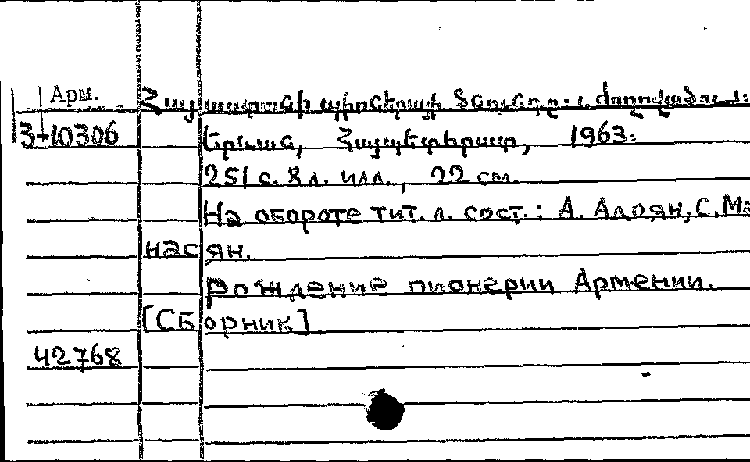 Арм. Հայաստանի պիոներիայի ծնունդը: Ժողովածու:
3-10306 Երևան, Հայպետհրատ, 1963:
251 с. 8 л. илл., 22 см.
На обороте тит. л. сост.: А. Алоян, С. Ма
насян.
Рождение пионерии Армении.
[Сборник]
42768